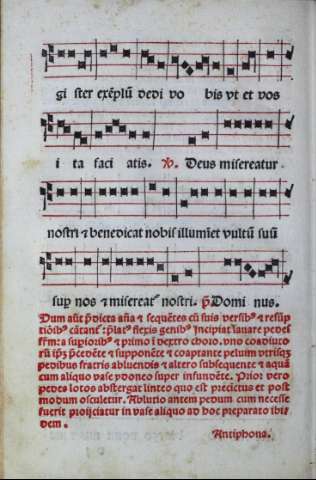 gi ster exẽplũ dedi vo bis vt et vos
i ta faci atis. ℣. Deus misereatur
nostri ⁊ benedicat nobis illumiet vultũ suũ
sup nos ⁊ misereat nostri. p̃ Domi nus.
Dum aũt p̃dicta aña ⁊ sequẽtes cũ suis versibꝰ ⁊ resup
tiõibꝰ cãtant: p̃latꝰ flexis genibꝰ incipiat lavare pedes
frm: a supioribꝰ ⁊ primo i dextro choro. vno coadiuto
rũ ip̃z p̃cedẽte ⁊ supponẽte ⁊ coaptante peluim vtrisqz
pedibus fratris abluendis ⁊ altero subsequente ⁊ aquã
cum aliquo vase ydoneo super infundẽte. Prior vero
pedes lotos abstergat linteo quo est precictus et post
modum osculetur. Ablutio antem pedum cum necesse
fuerit proijciatur in vase aliquo ad hoc preparato ibi
dem.
Antiphona.